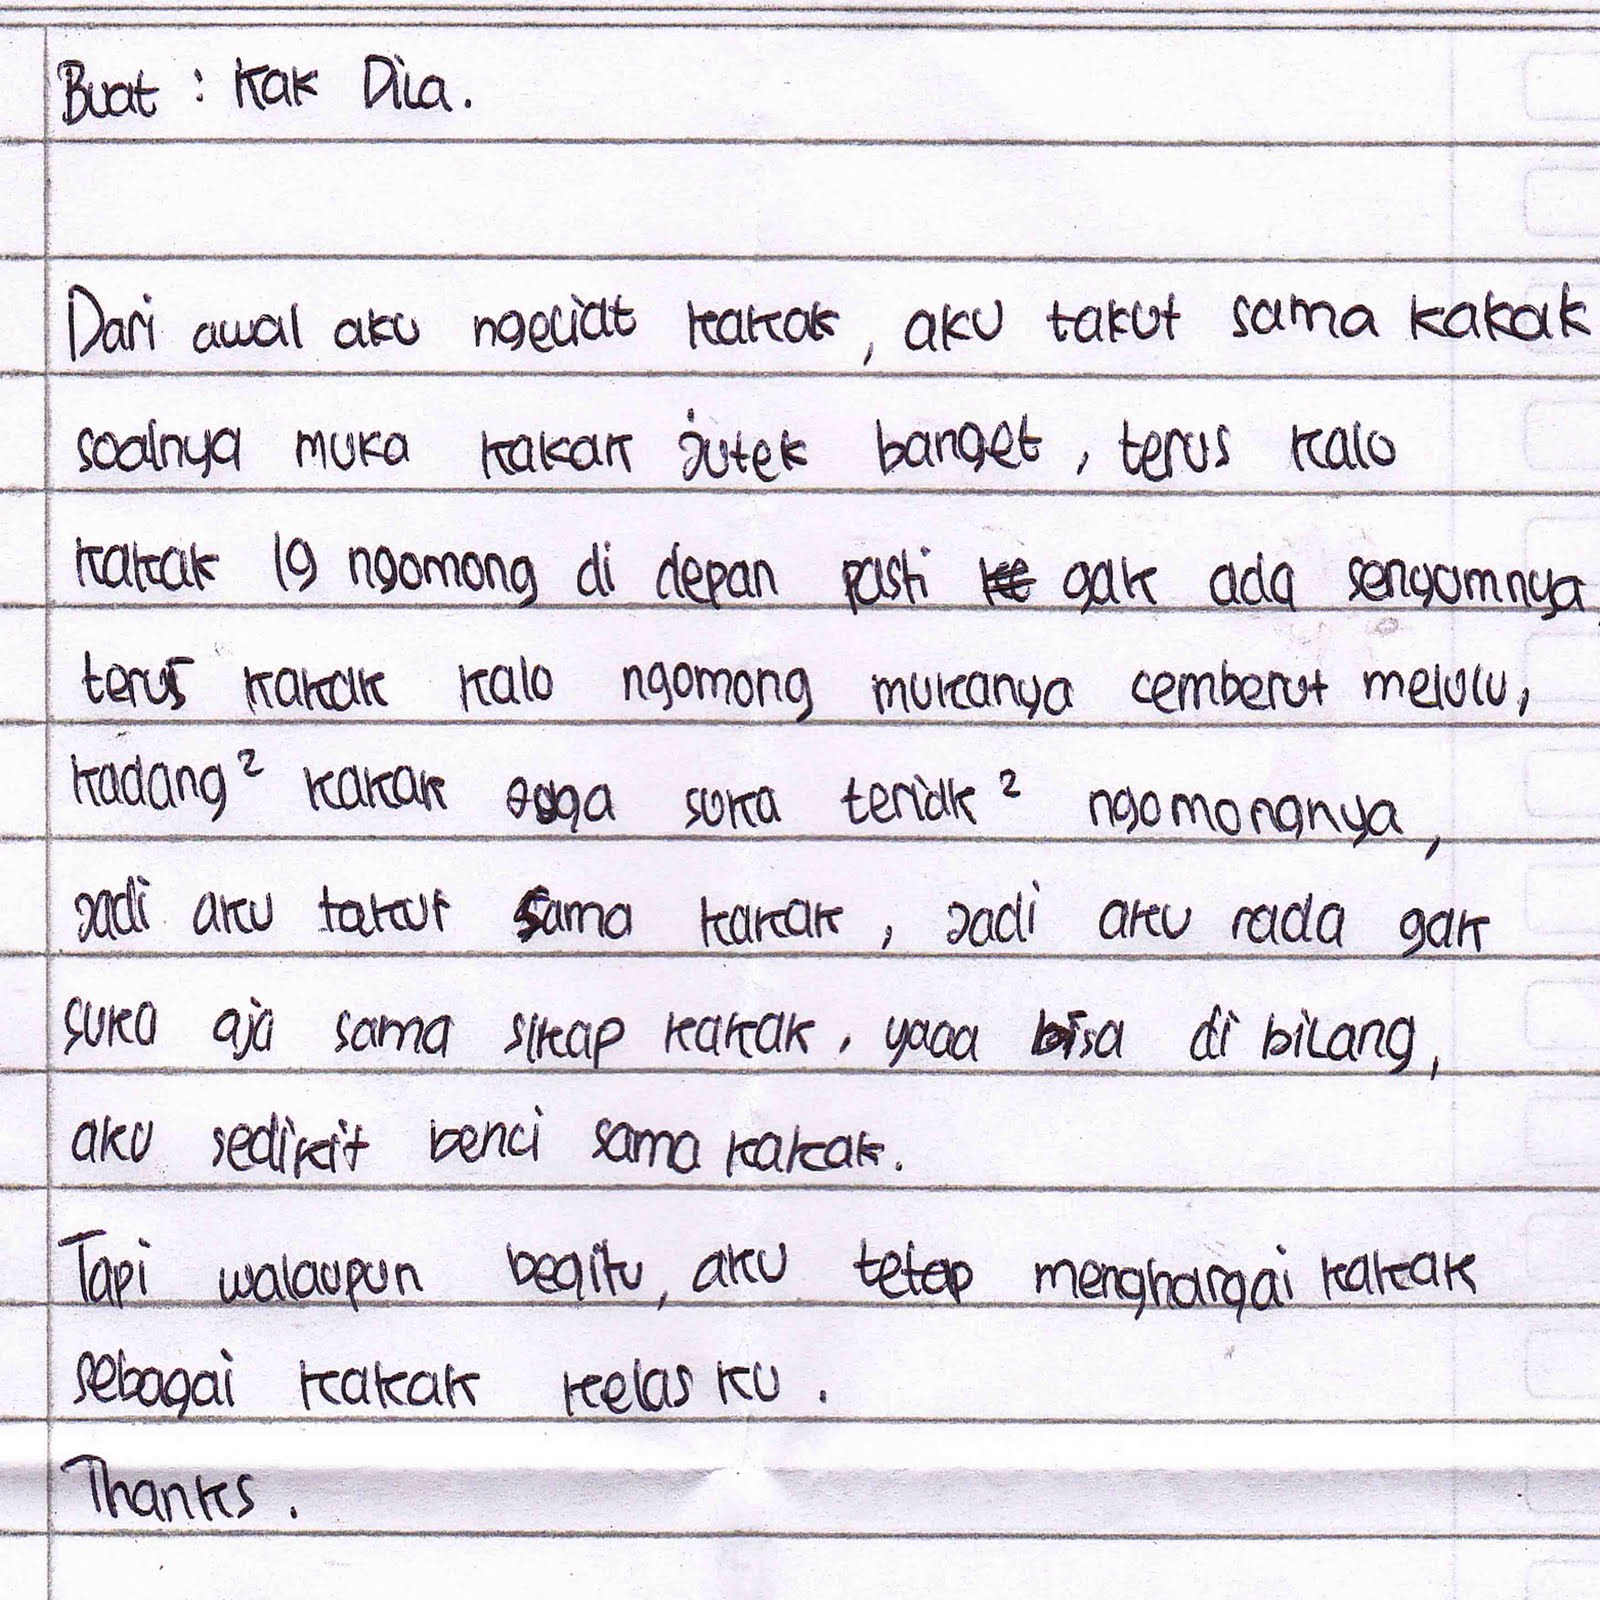 Buat : Kak Dila.
Dari awal aku ngeliat kakak, aku takut sama kakak
soalnya muka kakak jutek banget, terus kalo
kakak lg ngomong di depan pasti gak ada senyumnya,
terus kakak kalo ngomong mukanya cemberut melulu,
kadang² kakak juga suka teriak² ngomongnya,
jadi aku takut sama kakak, jadi aku rada gak
suka aja sama sikap kakak, yaaa bisa di bilang,
aku sedikit benci sama kakak.
Tapi walaupun begitu, aku tetap menghargai kakak
sebagai kakak kelas ku.
Thanks.